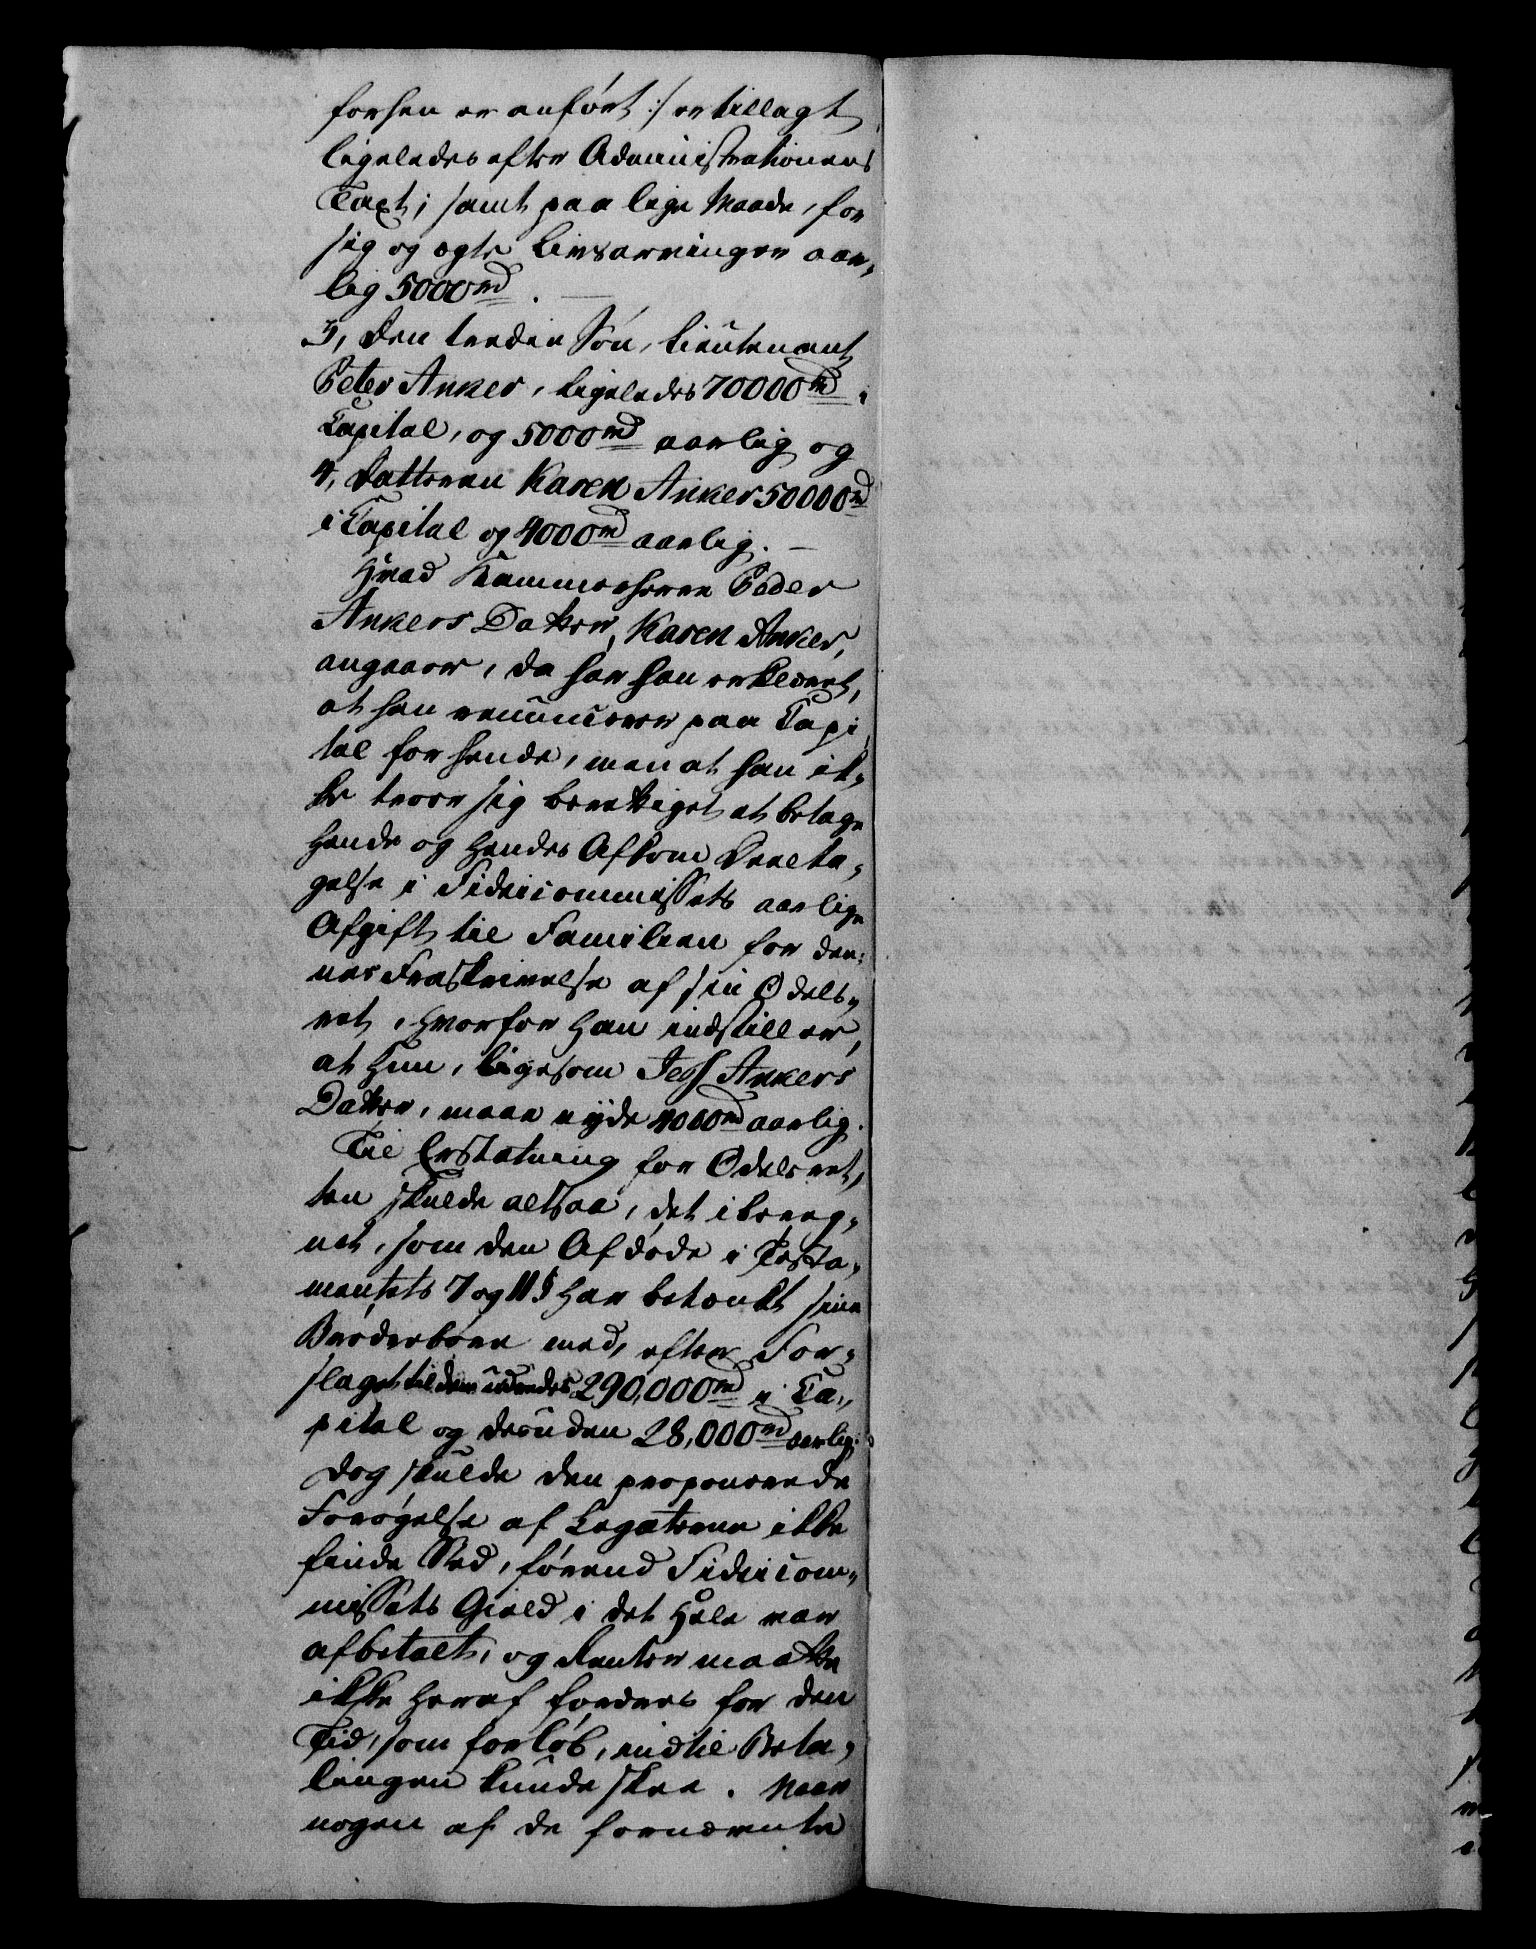 forhen er anført :/ er tillagt
ligeledes efter Administrationens
Taxt; samt paa lige Maade, for
sig og ægte Livsarvinger aar„
lig 5000rd.
3, Den tredie Søn, Lieutenant
Peter Anker, ligeledes 70000rd i
Capital, og 5000rd aarlig og
4, Datteren Karen Anker 50000rd
i Capital og 4000rd aarlig. –
Hvad Kammerherre Peder
Ankers Datter, Karen Anker,
angaaer, da har han erklæret,
at han renuncerer paa Capi„
tal for hende, men at han ik„
ke troer sig berettiget at betage
hende og hendes Afkom Deelta„
gelse i Fideicommissets aarlige
Afgift til Familien for den„
nes Fraskrivelse af sin Odels„
ret, hvorfor han indstiller,
at hun, ligesom Jess Ankers
Datter, maae nyde 4000rd aarlig.
Til Erstatning for Odelsret„
ten skulde altsaa, det ibereg„
net, som den Afdøde i Testa„
mentets 7 og 11 § har betænkt sine
Brøderbørn med, efter For„
slaget til dem udredes 290,000rd i Ca„
pital og desuden 28,000rd aarlig.
Dog skulde den proponerede
Forøgelse af Legaterne ikke
finde Sted, førend Fideicom„
missets Gield i det Hele var
afbetalt, og Renter maatte
ikke heraf fordres for den
Tid, som forløb, indtil Beta„
lingen kunde skee. Naar
nogen af de fornævnte